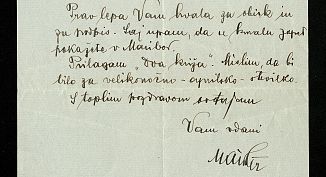 Prav lepa Vam hvala za obisk in
za podpis. Saj upam, da v kratu zopet
pokažete v Maribor.
Prilagam „dva križa". Mislim, da bi
bilo za velikonočno številko.
S toplim pozdravom ostajam
Vam vdani